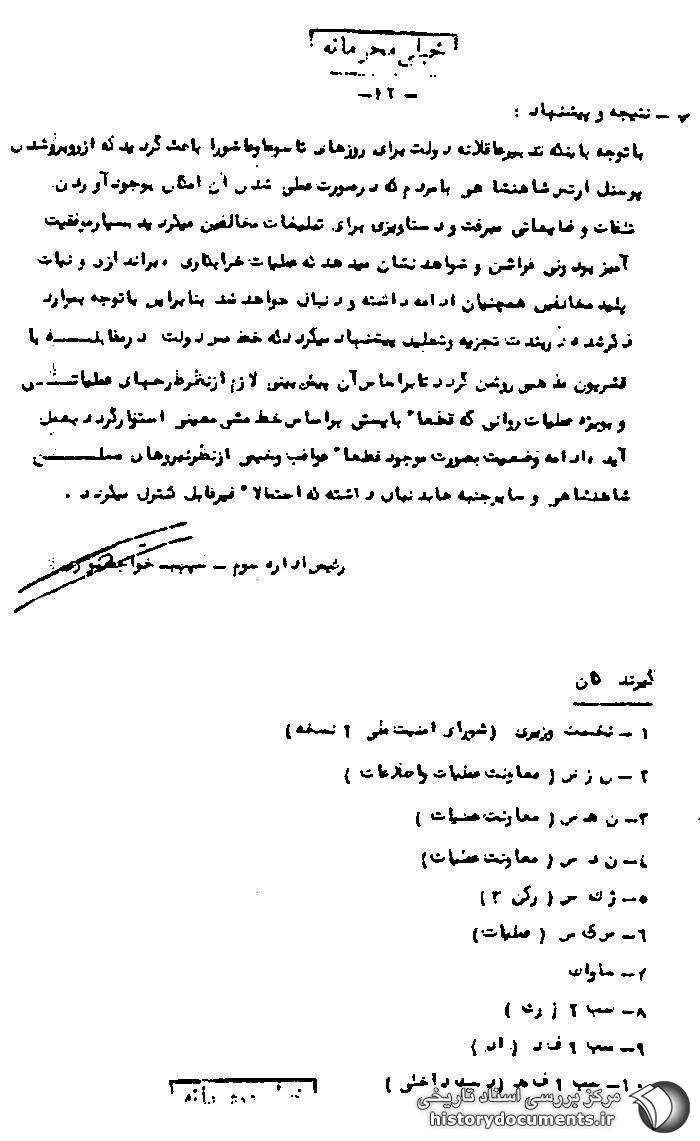 خیلی محرمانه
-۱۲-
۷ - نتیجه و پیشنهاد :
باتوجه باینکه تدبیر عاقلانه دولت برای روزهای تاسوعا وعاشورا باعث گردید که از روبرو شدن
پرسنل ارتش شاهنشاهی بامردم که درصورت عملی شدن آن امکان بوجود آوردن
تلفات و ضایعاتی میرفت و دستاویزی برای تبلیغات مخالفین میگردید بسیار موفقیت
آمیز بود ولی قرائن و شواهد نشان میدهد که عملیات خرابکاری ، براندازی و نیات
پلید مخالفین همچنان ادامه داشته و دنبال خواهد شد بنابراین باتوجه بموارد
ذکرشده در بند تجزیه وتحلیل پیشنهاد میگردد که خط مشی دولت درمقابله با
قشریون مذهبی روشن گردد تا براساس آن پیش بینی لازم ازنظر طرحهای عملیاتی
و بویژه عملیات روانی که قطعا" بایستی براساس خط مشی معینی استوار گردد بعمل
آید ، ادامه وضعیت بصورت موجود قطعا" عواقب وخیمی ازنظر نیروهای مسلح
شاهنشاهی و سایر جنبه ها بدنبال داشته که احتمالا" غیرقابل کنترل میگردد .
رئیس اداره سوم - سپهبد خواجه نوری
گیرندگان
۱ - نخست وزیری (شورای امنیت ملی ۲ نسخه)
۲ - ( معاونت عملیات واطلاعات )
۳ - ن ه ش ( معاونت عملیات )
۴ - ن د ش ( معاونت عملیات)
۵ - ژ ک ش ( رکن ۳ )
۶ - ش ک ش ( عملیات)
۷ - ساواک
۸ - سب ۲
۹ - سب ۶
۱۰ -
خیلی محرمانه
مرکز بررسی اسناد تاریخی
historydocuments.ir